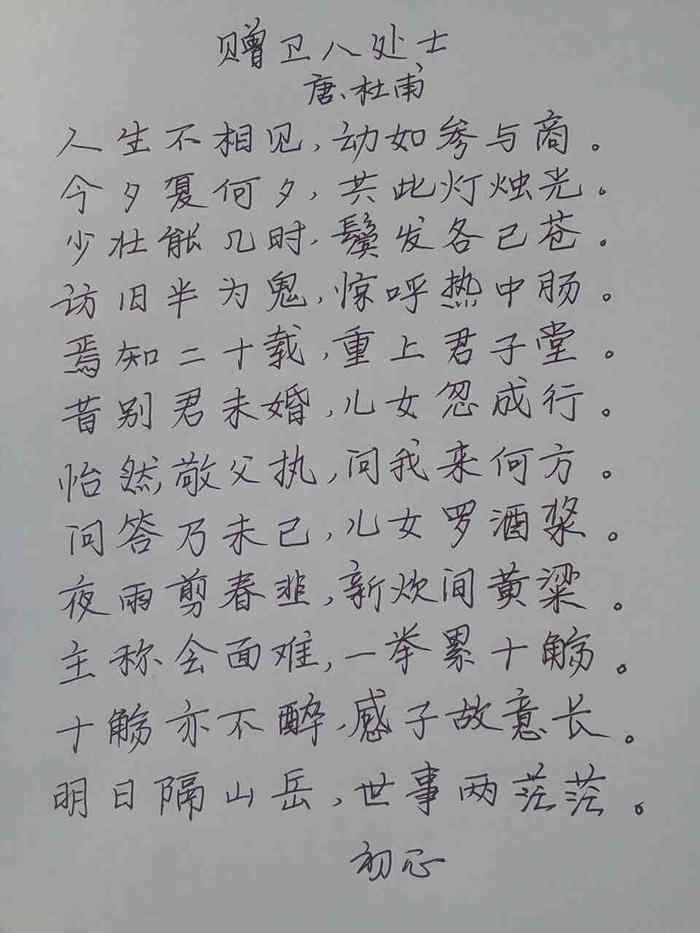 赠卫八处士
唐、杜甫
人生不相见,动如参与商。
今夕复何夕,共此灯烛光。
少壮能几时,鬓发各已苍。
访旧半为鬼,惊呼热中肠。
焉知二十载,重上君子堂。
昔别君未婚,儿女忽成行。
怡然敬父执,问我来何方。
问答乃未已,儿女罗酒浆。
夜雨剪春韭,新炊间黄粱。
主称会面难,一举累十觞。
十觞亦不醉,感子故意长。
明日隔山岳,世事两茫茫。
初心